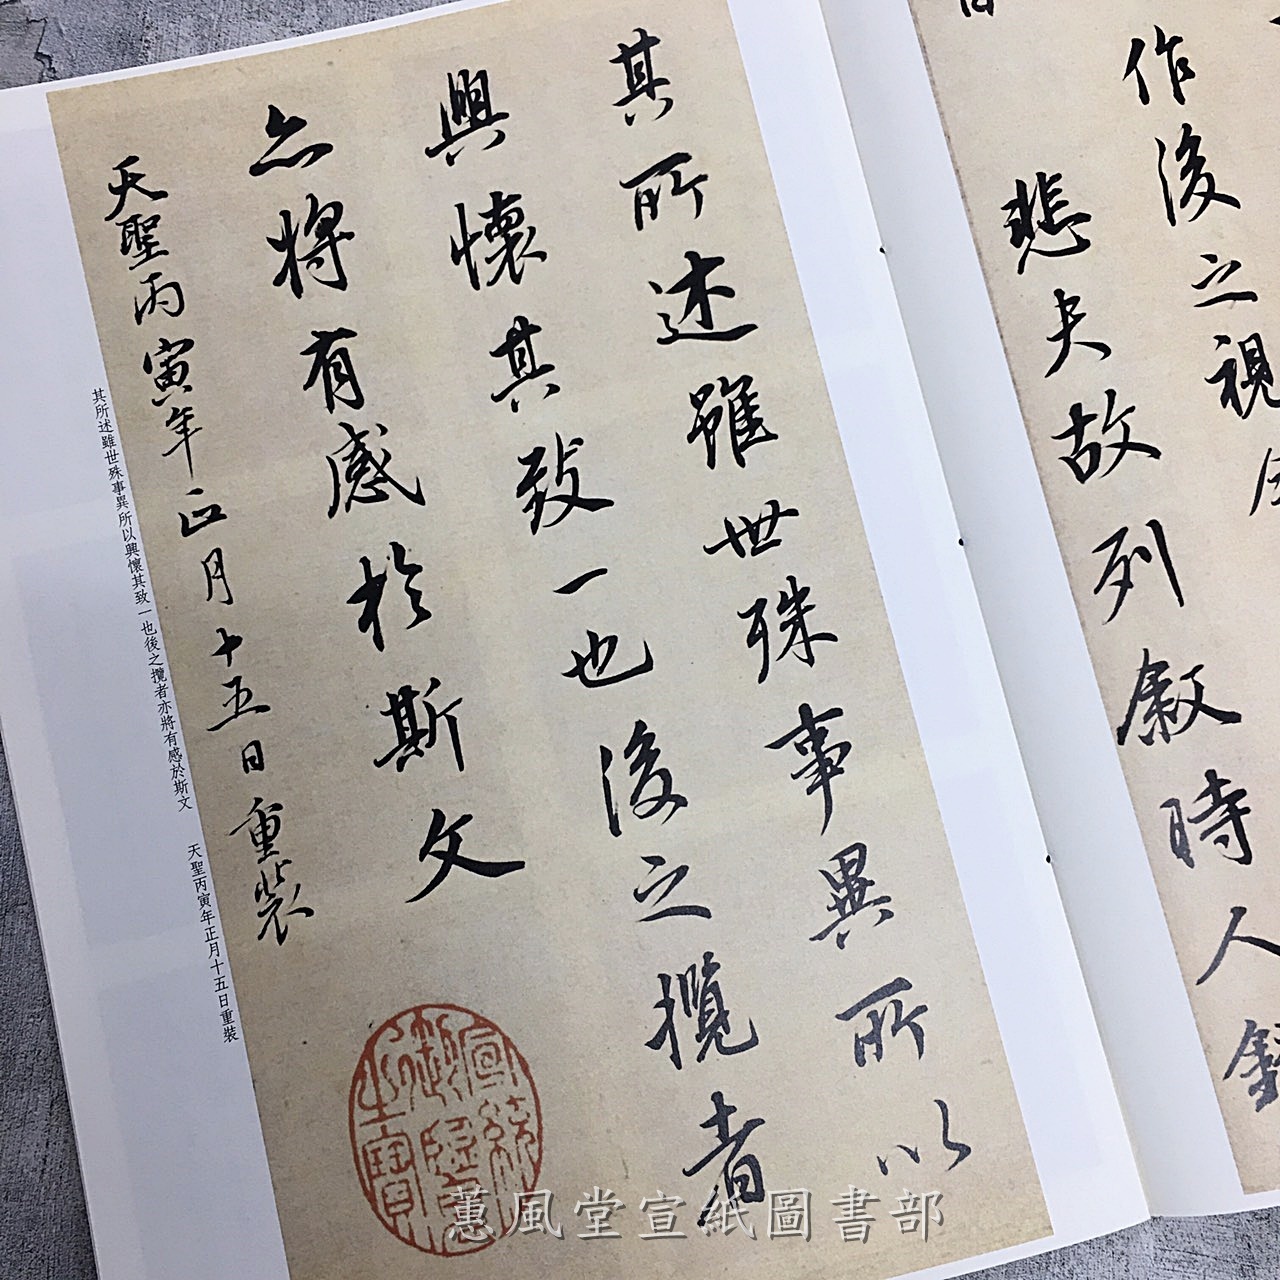 作後之視
悲夫故列敘時人
其所述雖世殊事異所以
興懷其致一也後之攬者
亦將有感於斯文
天聖丙寅年正月十五日重裝
宣統御覽之寶
其所述雖世殊事異所以興懷其致一也後之攬者亦將有感於斯文　天聖丙寅年正月十五日重裝
蕙風堂宣紙圖書部